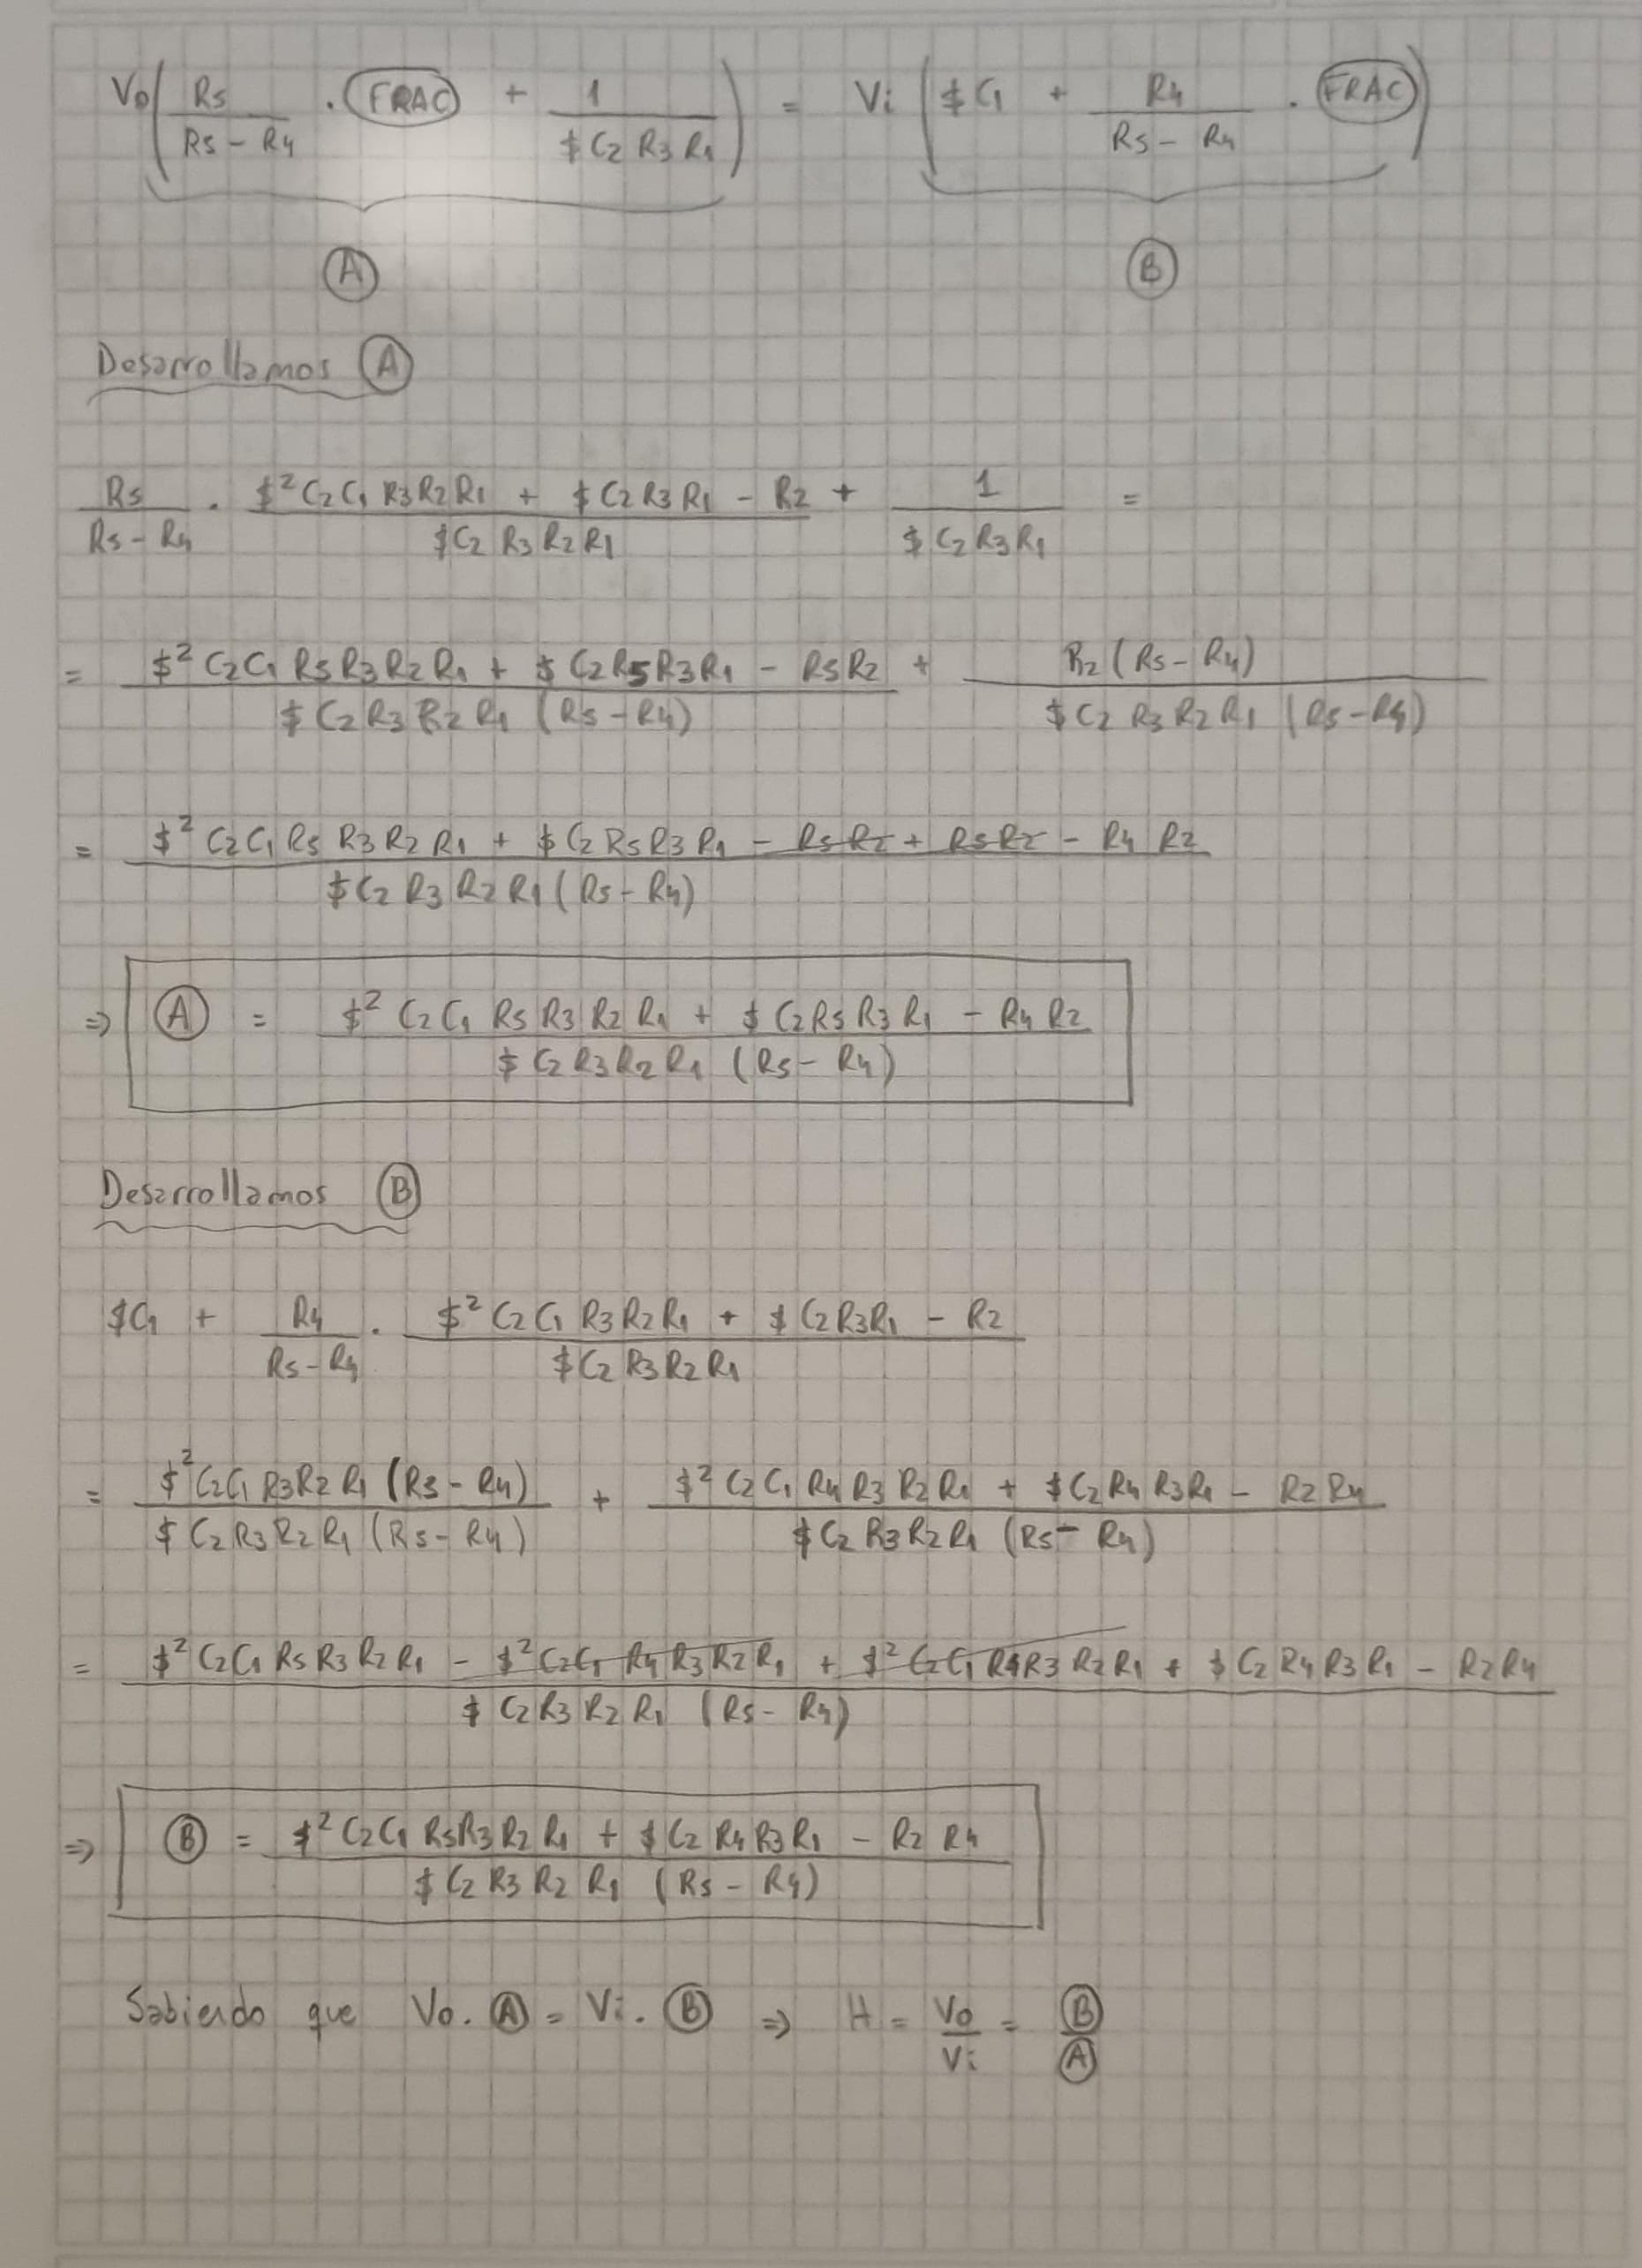 Vo( R5/(R5 - R4) . FRAC + 1/($ C2 R3 R1) ) = Vi ( $ C1 + R4/(R5 - R4) . FRAC )
A B
Desarrollamos A
R5/(R5 - R4) . ($² C2 C1 R3 R2 R1 + $ C2 R3 R1 - R2)/($ C2 R3 R2 R1) + 1/($ C2 R3 R1) =
= ($² C2 C1 R5 R3 R2 R1 + $ C2 R5 R3 R1 - R5 R2)/($ C2 R3 R2 R1 (R5 - R4)) + R2 (R5 - R4)/($ C2 R3 R2 R1 (R5 - R4))
= ($² C2 C1 R5 R3 R2 R1 + $ C2 R5 R3 R1 - R5 R2 + R5 R2 - R4 R2)/($ C2 R3 R2 R1 (R5 - R4))
⇒ A = ($² C2 C1 R5 R3 R2 R1 + $ C2 R5 R3 R1 - R4 R2)/($ C2 R3 R2 R1 (R5 - R4))
Desarrollamos B
$ C1 + R4/(R5 - R4) . ($² C2 C1 R3 R2 R1 + $ C2 R3 R1 - R2)/($ C2 R3 R2 R1)
= $² C2 C1 R3 R2 R1 (R5 - R4)/($ C2 R3 R2 R1 (R5 - R4)) + ($² C2 C1 R4 R3 R2 R1 + $ C2 R4 R3 R1 - R2 R4)/($ C2 R3 R2 R1 (R5 - R4))
= ($² C2 C1 R5 R3 R2 R1 - $² C2 C1 R4 R3 R2 R1 + $² C2 C1 R4 R3 R2 R1 + $ C2 R4 R3 R1 - R2 R4)/($ C2 R3 R2 R1 (R5 - R4))
⇒ B = ($² C2 C1 R5 R3 R2 R1 + $ C2 R4 R3 R1 - R2 R4)/($ C2 R3 R2 R1 (R5 - R4))
Sabiendo que Vo . A = Vi . B ⇒ H = Vo/Vi = B/A